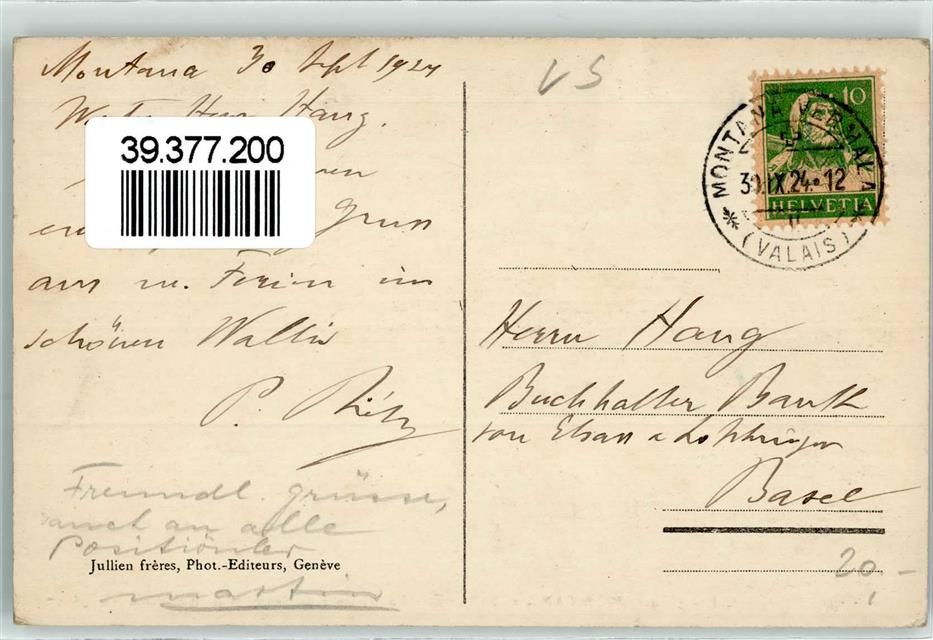 Montana 30 Sept 1924
Herr Haug.
39.377.200
Gruss
aus m. Ferien im
schönen Wallis
P.
Freundl. grüsse,
auch an alle
Positiönler
Martin
Jullien frères, Phot.-Editeurs, Genève
VS
10
HELVETIA
MONTANA-VERMALA
30.IX.24.-12
(VALAIS)
Herrn Haug
Buchhalter Bank
von Elsass & Lothringen
Basel
20.-